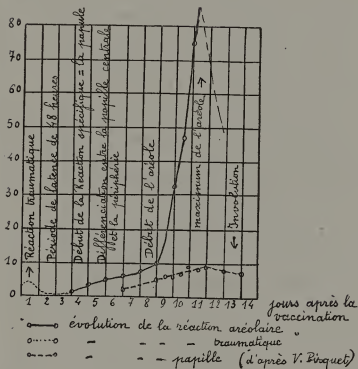 80
70
60
50
40
30
20
10
0
→ Réaction traumatique
Période de latence de 48 heures
Début de la Réaction spécifique = la papule
Différenciation entre la papille centrale
et la périphérie
Début de l'aréole
maximum de l'aréole →
← Involution
1 2 3 4 5 6 7 8 9 10 11 12 13 14
jours après la
vaccination
évolution de la réaction aréolaire
" - " - - traumatique
" - " - papille (d'après V. Pirquet)